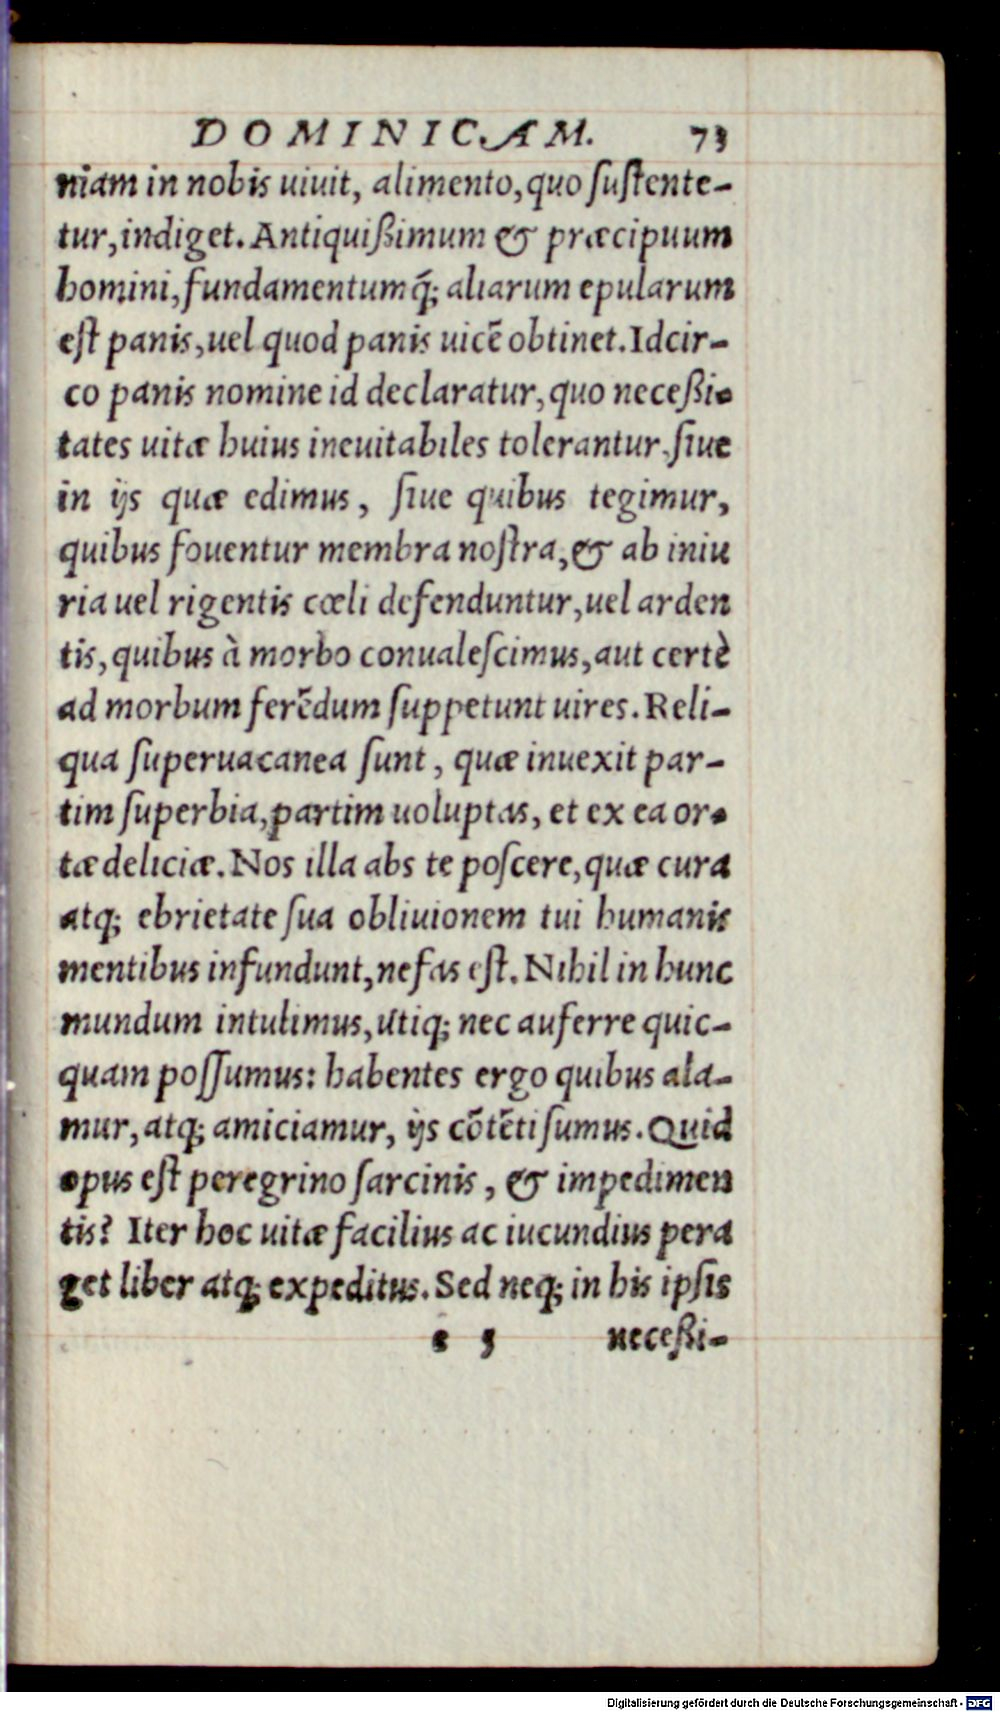 DOMINICAM. 73
niam in nobis uiuit, alimento, quo ſuſtente-
tur, indiget. Antiquißimum & præcipuum
homini, fundamentumq́; aliarum epularum
eſt panis, uel quod panis uicē obtinet. Idcir-
co panis nomine id declaratur, quo neceßi-
tates uitæ huius ineuitabiles tolerantur, ſiue
in ijs quæ edimus, ſiue quibus tegimur,
quibus fouentur membra noſtra, & ab iniu
ria uel rigentis cœli defenduntur, uel arden
tis, quibus à morbo conualeſcimus, aut certè
ad morbum ferēdum ſuppetunt uires. Reli-
qua ſuperuacanea ſunt, quæ inuexit par-
tim ſuperbia, partim uoluptas, et ex ea or-
tæ deliciæ. Nos illa abs te poſcere, quæ cura
atq; ebrietate ſua obliuionem tui humanis
mentibus infundunt, nefas eſt. Nihil in hunc
mundum intulimus, utiq; nec auferre quic-
quam poſſumus: habentes ergo quibus ala-
mur, atq; amiciamur, ijs cōtēti ſumus. Quid
opus eſt peregrino ſarcinis, & impedimen
tis? Iter hoc uitæ facilius ac iucundius pera
get liber atq; expeditus. Sed neq; in his ipſis
neceßi-
Digitalisierung gefördert durch die Deutsche Forschungsgemeinschaft - DFG